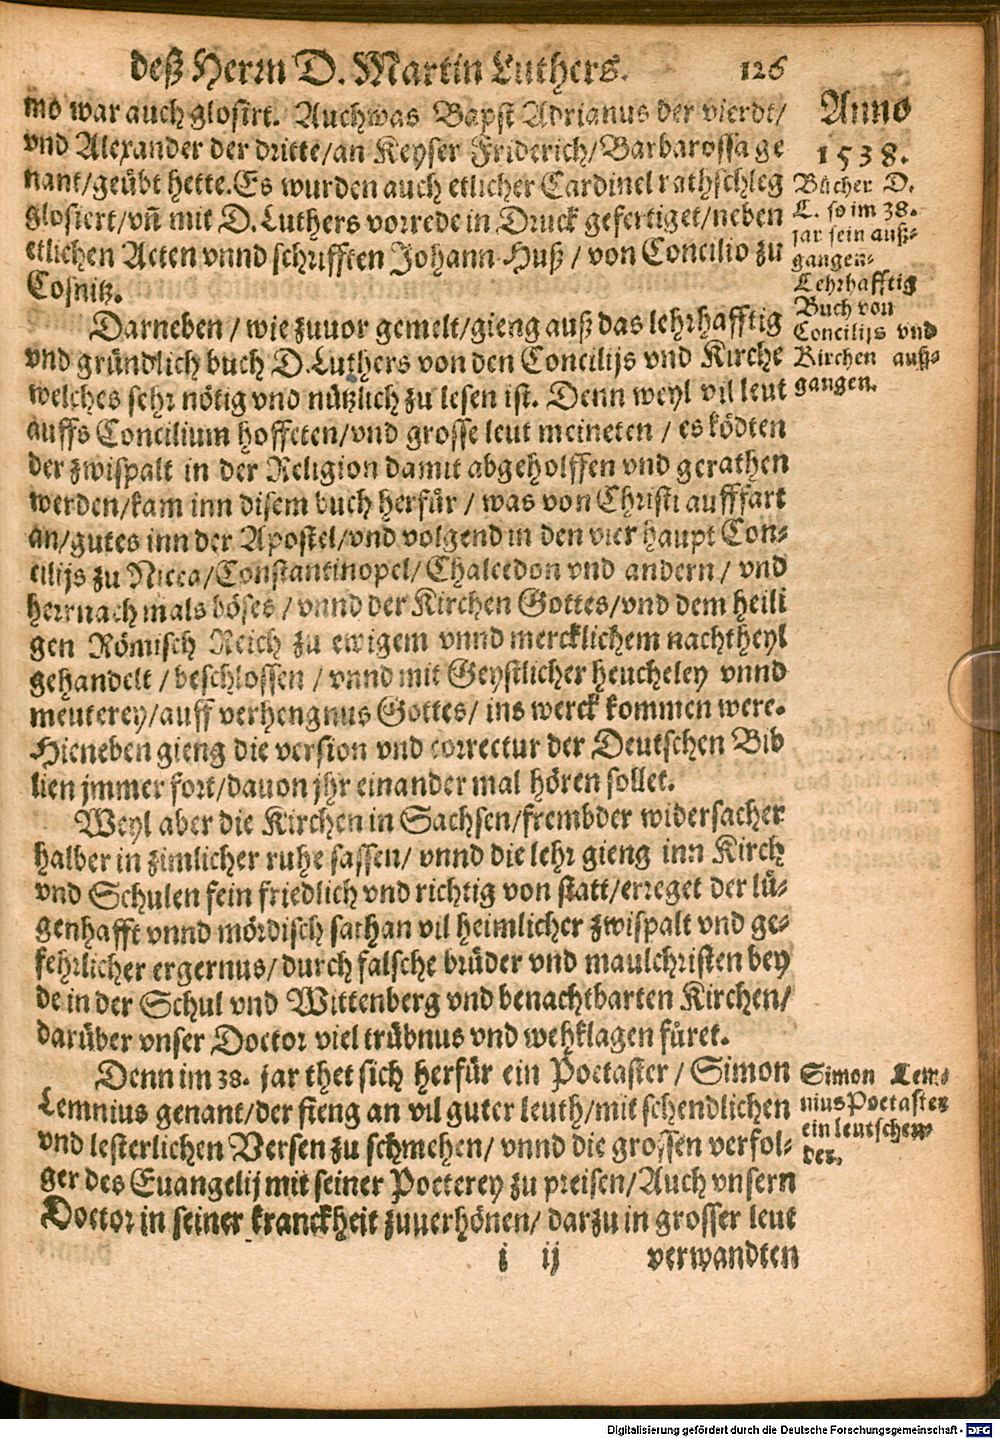 deß Herrn D. Martin Luthers. 126
mo war auch glosirt. Auch was Bapst Adrianus der vierdt/
vnd Alexander der dritte/an Keyser Friderich/Barbarossa ge
nant/geübt hette. Es wurden auch etlicher Cardinel rathschleg
glosiert/vñ mit D. Luthers vorrede in Druck gefertiget/neben
etlichen Acten vnnd schrifften Johann Huß / von Concilio zu
Cosnitz.
Darneben / wie zuuor gemelt/gieng auß das lehrhafftig
vnd gründlich buch D. Luthers von den Concilijs vnd Kirche
welches sehr nötig vnd nützlich zu lesen ist. Denn weyl vil leut
auffs Concilium hoffeten/vnd grosse leut meineten / es ködten
der zwispalt in der Religion damit abgeholffen vnd gerathen
werden/kam inn disem buch herfür / was von Christi auffart
an/gutes inn der Apostel/vnd volgend in den vier haupt Con-
cilijs zu Nicea/Constantinopel/Chalcedon vnd andern / vnd
herrnach mals böses / vnnd der Kirchen Gottes/vnd dem heili
gen Römisch Reich zu ewigem vnnd mercklichem nachtheyl
gehandelt / beschlossen / vnnd mit Geystlicher heucheley vnnd
meuterey/auff verhengnus Gottes/ ins werck kommen were.
Hieneben gieng die version vnd correctur der Deutschen Bib
lien jmmer fort/dauon jhr einander mal hören sollet.
Weyl aber die Kirchen in Sachsen/frembder widersacher
halber in zimlicher ruhe sassen/ vnnd die lehr gieng inn Kirch
vnd Schulen fein friedlich vnd richtig von statt/erreget der lü-
genhafft vnnd mördisch sathan vil heimlicher zwispalt vnd ge-
fehrlicher ergernus/ durch falsche brüder vnd maulchristen bey
de in der Schul vnd Wittenberg vnd benachtbarten Kirchen/
darüber vnser Doctor viel trübnus vnd wehklagen füret.
Denn im 38. jar thet sich herfür ein Poetaster / Simon
Lemnius genant/der fieng an vil guter leuth/mit schendlichen
vnd lesterlichen Versen zu schmehen/ vnnd die grossen verfol-
ger des Euangelij mit seiner Poeterey zu preisen/Auch vnsern
Doctor in seiner kranckheit zuuerhönen/ darzu in grosser leut
i ij verwandten
Anno
1538.
Bücher D.
L. so im 38.
jar sein auß-
gangen.
Lehrhafftig
Buch von
Concilijs vnd
Kirchen auß-
gangen.
Simon Lem-
nius Poetaster
ein leutschen-
der.
Digitalisierung gefördert durch die Deutsche Forschungsgemeinschaft - DFG